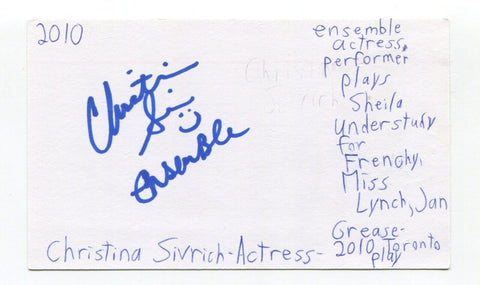 2010
Christin
Si
Ensemble
Christ
Sivrich
ensemble
actress,
performer
plays
Sheila
Understudy
for
Frenchy,
Miss
Lynch, Jan
Grease-
2010 Toronto
play
Christina Sivrich-Actress-